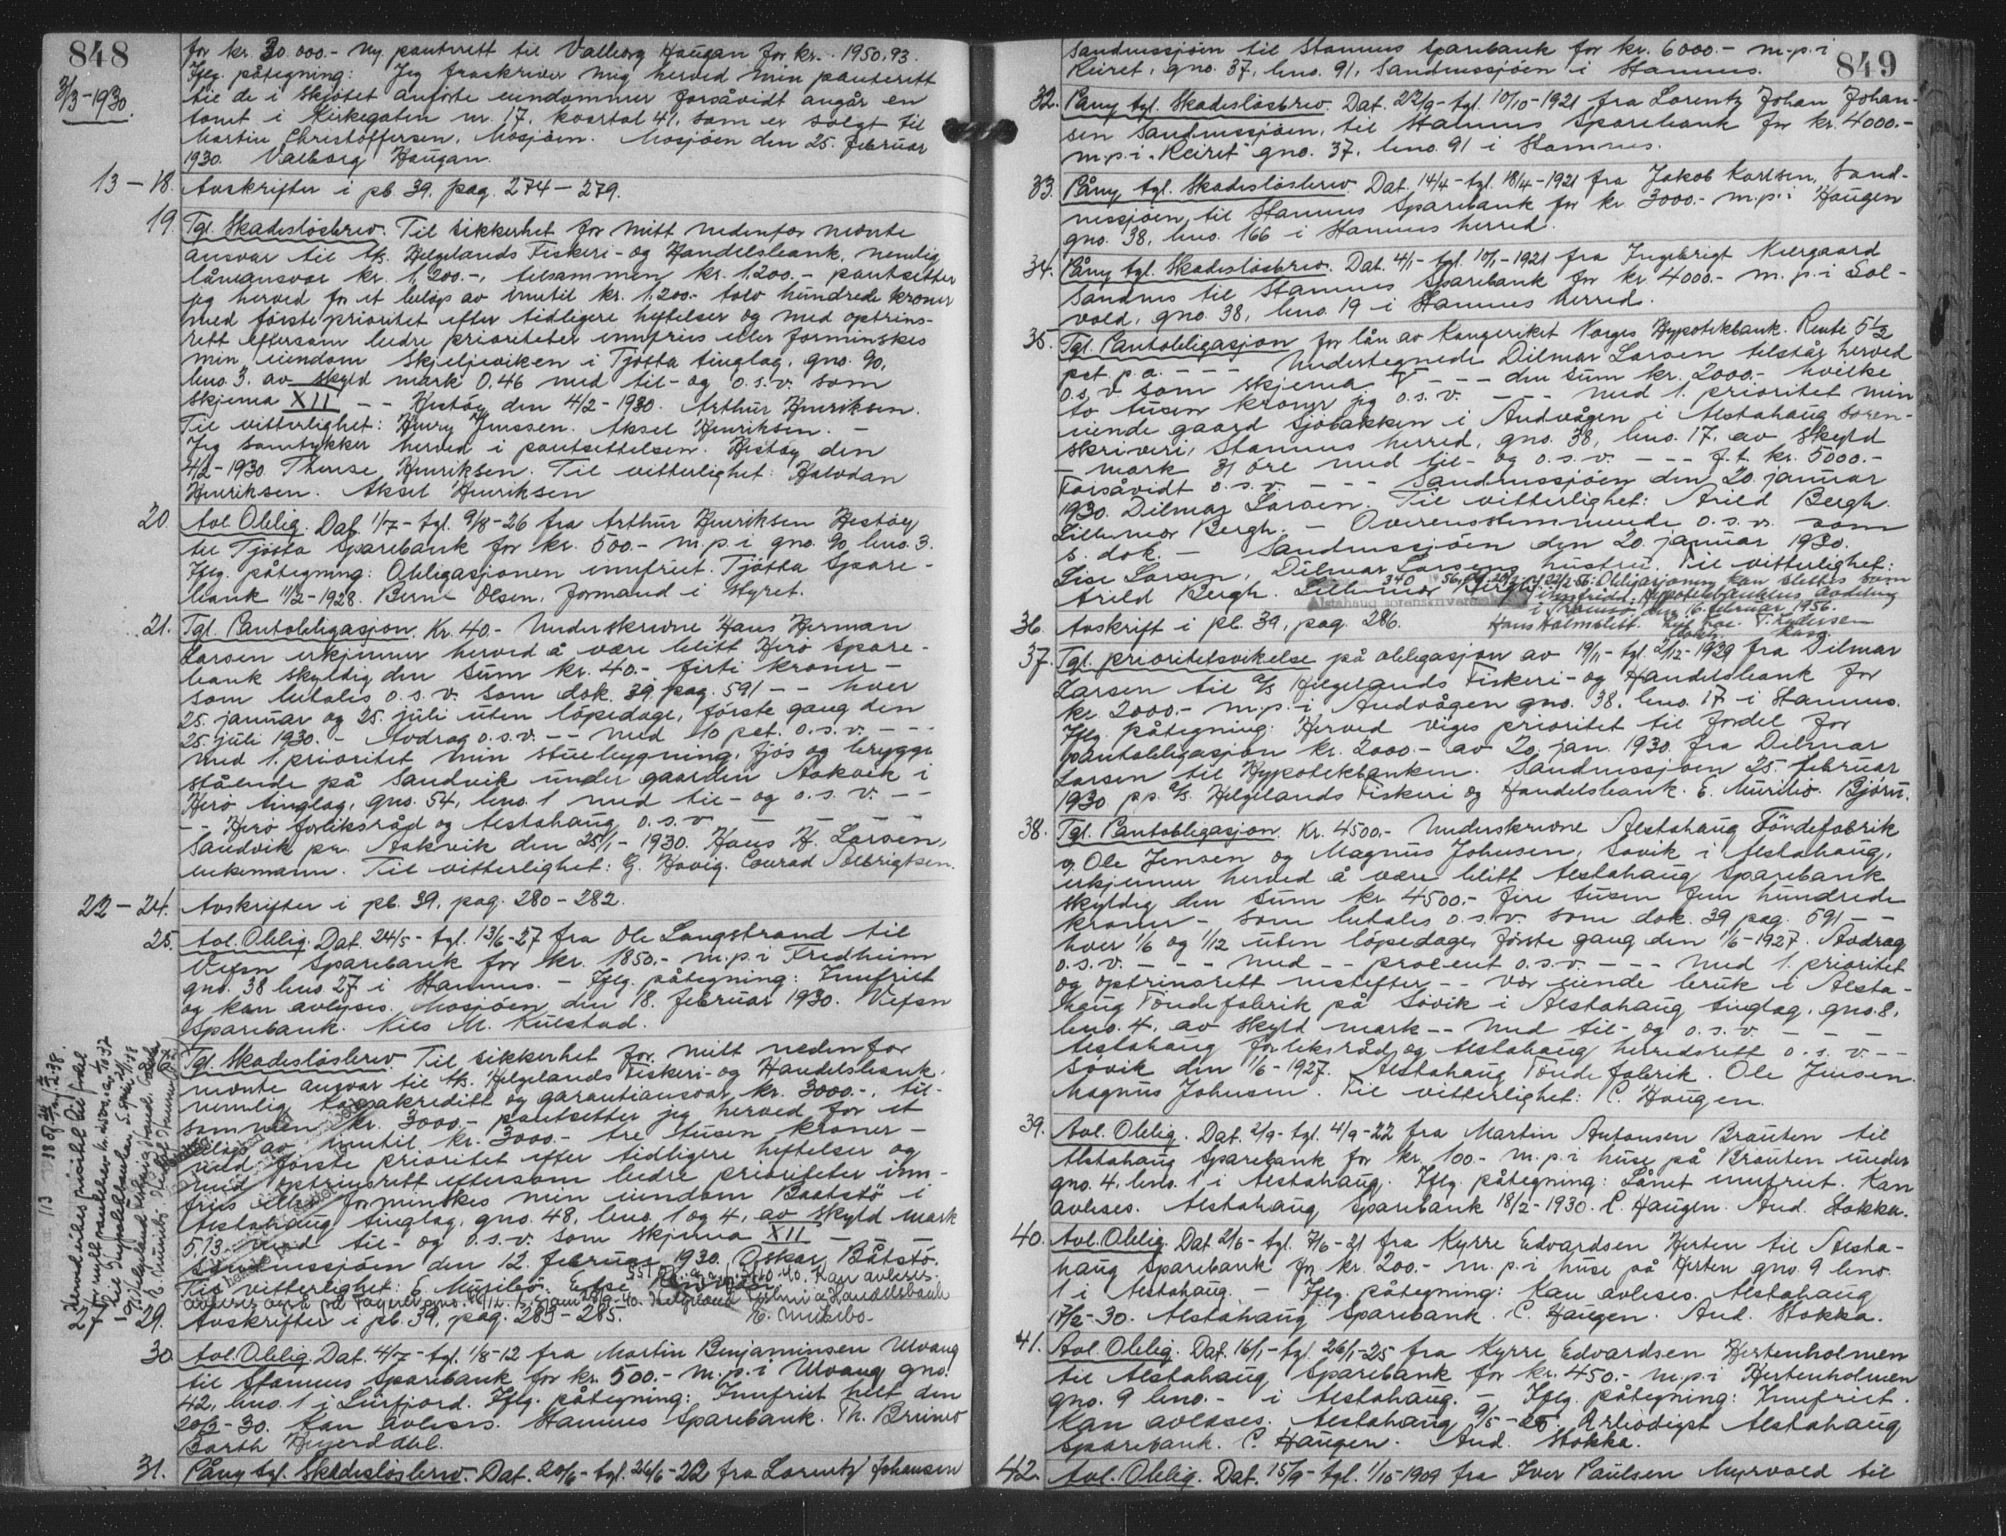 848
3/3-1930.
for kr. 30 000.- Ny panterett til Valborg Haugan for kr. 1950.93.
Iflg. påtegning: Jeg fraskriver mig herved min panterett
til de i skjötet anförte eiendommer forsåvidt angår en
tomt i Kirkegaten nr. 17, kvartal 41, som er solgt til
Martin Christoffersen, Mosjöen. Mosjöen den 25. februar
1930. Valborg Haugan.
13 - 18. Avskrifter i pb. 39, pag. 274 - 279.
19. Tgl. Skadeslösbrev. Til sikkerhet for mitt nedenfor nevnte
ansvar til A/s Helgelands Fiskeri- og Handelsbank, nemlig
låneansvar kr. 1,200.-, tilsammen kr. 1200.- pantsetter
jeg herved for et belöp av inntil kr. 1200.- tolv hundrede kroner
med förste prioritet efter tidligere heftelser og med optrins-
rett eftersom bedre prioriteter innfries eller forminskes
min eiendom Skjeljeviken i Tjötta tinglag, gno. 90,
bno. 3. av skyld mark 0,46 med til- og o.s.v. som
skjema XII - - Hestöy den 4/2-1930. Arthur Henriksen.
Til vitterlighet: Henry Jenssen. Aksel Henriksen. -
Jeg samtykker herved i pantsettelsen. Hestöy den
4/2-1930 Therese Henriksen. Til vitterlighet: Halvdan
Henriksen. Aksel Henriksen
20. Avl. Oblig. Dat. 1/7 - tgl. 9/8-26 fra Arthur Henriksen Hestöy
til Tjötta Sparebank for kr. 500.- m.p. i gno. 90 bno. 3.
Iflg. påtegning: Obligasjonen innfriet. Tjötta Spare-
bank 11/2-1928. Bernt Olsen, formand i Styret.
21. Tgl. Pantobligasjon. Kr. 40.- Underskrevne Hans Herman
Larsen erkjenner herved å være blitt Herö Spare-
bank skyldig den Sum kr. 40.- firti kroner -
som betales o.s.v. som dok. 39, pag. 591 - - hver
25. januar og 25. juli uten löpedage, förste gang den
25. juli 1930. - Avdrag o.s.v. - - med 10 pct. o.s.v. - -
med 1. prioritet min stuebygning, fjös og brygge
stående på Sandvik under gaarden Aakvik i
Herö tinglag, gno. 54, bno. 1 med til- og o.s.v. - -
- - Herö forliksråd og Alstahaug o.s.v. - - -
Sandvik pr. Aakvik den 25/1-1930. Hans H. Larsen,
enkemann. Til vitterlighet: G. Hovig. Conrad Albrigtsen.
22 - 24. Avskrifter i pb. 39, pag. 280 - 282.
25. Avl. Oblig. Dat. 24/5 - tgl. 13/6-27 fra Ole Langstrand til
Vefsn Sparebank for kr. 1850.- m.p. i Fredheim
gno. 38 bno. 27 i Stamnes. - Iflg. påtegning: Innfriet
og kan avlyses. Mosjöen den 18. februar 1930. Vefsn
Sparebank. Nils M. Kulstad.
Tgl. Skadeslösbrev. Til sikkerhet for mitt nedenfor
nevnte ansvar til A/s. Helgelands Fiskeri- og Handelsbank,
nemlig kassakreditt og garantiansvar kr. 3000.-, til-
sammen kr. 3000.- pantsetter jeg herved for et
belöp av inntil kr. 3000.- tre tusen kroner -
med förste prioritet efter tidligere heftelser og
med optrinsrett eftersom bedre prioriteter inn-
fries eller forminskes min eiendom Baatstö i
Alstahaug tinglag, gno. 48, bno. 1 og 4, av skyld mark
5,13 med til- og o.s.v. som skjema XII - - -
Sandnessjöen den 12. februar 1930. Oskar Båtstö.
Til vitterlighet: E. Muribö.
Kan avleses.
29. Avskrifter i pb. 39, pag. 283 - 285.
30. Avl. Oblig. Dat. 4/7 - tgl. 1/8-12 fra Martin Benjaminsen Ulvang
til Stamnes Sparebank for kr. 500.- m.p. i Ulvang gno.
42, bno. 1 i Leirfjord. Iflg. påtegning: Innfriet helt den
20/2-30. Kan avleses. Stamnes Sparebank. Th. Brunvo
Barth Hejerdahl.
31. Påny tgl. Skadeslösbrev. Dat. 20/6 - tgl. 26/6-22 fra Lorentz Johansen
849
Sandnessjöen til Stamnes Sparebank for kr. 6000.- m.p. i
Keiret, gno. 37, bno. 91, Sandnessjöen i Stamnes.
32. Påny tgl. Skadeslösbrev. Dat. 22/9 - tgl. 10/10-1921 fra Lorentz Johan Johan-
sen Sandnessjöen, til Stamnes Sparebank for kr. 4000.-
m.p. i "Keiret" gno. 37, bno. 91 i Stamnes.
33. Påny tgl. Skadeslösbrev. Dat. 14/4 - tgl. 18/4-1921 fra Jakob Karlsen, Sand-
nessjöen, til Stamnes Sparebank for kr 3000.- m.p. i Haugen
gno. 38, bno. 166 i Stamnes herred.
34. Påny tgl. Skadeslösbrev. Dat. 4/1 - tgl. 10/1-1921 fra Ingebrigt Kiergaard
Sandnes til Stamnes Sparebank for kr. 4000.- m.p. i Sol-
vold, gno. 38, bno. 19 i Stamnes herred.
35. Tgl. Pantobligasjon for lån av Kongeriket Norges Hypotekbank. Rente 5 1/2
pct. p.a. - - - Undertegnede Dilmar Larsen tilstår herved
o.s.v. som skjema V - - - den sum kr. 2000.- hvilke
to tusen kroner jeg o.s.v. - - - med 1. prioritet min
eiende gaard Sjöbakken i Andvågen i Alstahaug soren-
skriveri, Stamnes herred, gno. 38, bno. 17, av skyld
- mark 31 öre med til- og o.s.v. - - - f.t. kr. 5000.-
Forsåvidt o.s.v. - - - Sandnessjöen den 20. januar
1930. Dilmar Larsen. Til vitterlighet: Arild Bergh.
Lillemor Bergh. - Overensstemmende o.s.v. som
s. dok. - Sandnessjöen den 20. januar 1930.
Lise Larsen, Dilmar Larsens hustru. Til vitterlighet:
Arild Bergh. Lillemor Bergh.
Obligasjonen kan slettes som
innfridd. Hypotekbankens avdeling
i Tromsö, den 16. februar 1956.
Alstahaug sorenskriverembete
36. Avskrift i pb. 39, pag. 286.
37. Tgl. prioritetsvikelse på obligasjon av 19/11 - tgl. 2/12-1929 fra Dilmar
Larsen til A/s Helgelands Fiskeri- og Handelsbank for
kr 2000.- m.p. i Andvågen gno. 38, bno. 17 i Stamnes.
Iflg. påtegning: Herved viges prioritet til fordel for
pantobligasjon kr. 2000.- av 20. jan. 1930 fra Dilmar
Larsen til Hypotekbanken. Sandnessjöen 25. februar
1930 pp. A/s. Helgelands Fiskeri og Handelsbank. E. Muribö. Björn.
38. Tgl. Pantobligasjon. Kr. 4500.- Underskrevne Alstahaug Töndefabrik
v/ Ole Jensen og Magnus Johnsen, Sövik i Alstahaug,
erkjenner herved å være blitt Alstahaug Sparebank
skyldig den Sum kr 4500.- fire tusen fem hundrede
kroner - som betales o.s.v. som dok. 39, pag. 591 - -
hver 1/6 og 1/12 uten löpedage, förste gang den 1/6-1927. Avdrag
o.s.v. - - - med - - procent o.s.v. - - - med 1. prioritet
og optrinsrett nestefter - - vor eiende bruk i Alsta-
haug Töndefabrik på Sövik i Alstahaug tinglag, gno. 8,
bno. 4, av skyld mark - - med til- og o.s.v. - - -
Alstahaug forliksråd og Alstahaug herredsrett o.s.v. - -
Sövik den 1/6-1927. Alstahaug Töndefabrik. Ole Jensen.
Magnus Johnsen. Til vitterlighet: C. Haugen.
39. Avl. Oblig. Dat. 2/9 - tgl. 4/9-22 fra Martin Antonsen Bråuten til
Alstahaug Sparebank for kr. 100.- m.p. i huse på Bråuten under
gno. 4, bno. 1 i Alstahaug. Iflg. påtegning: Lånet innfriet. Kan
avleses. Alstahaug Sparebank 18/2-1930. C. Haugen. And. Stokka.
40. Avl. Oblig. Dat. 2/6 - tgl. 7/6-21 fra Kyrre Edvardsen Herten til Alsta-
haug Sparebank for kr. 200.- m.p. i huse på Herten gno. 9 bno.
1 i Alstahaug. - Iflg. påtegning: Kan avleses. Alstahaug
17/2-30. Alstahaug Sparebank. C. Haugen. And. Stokka.
41. Avl. Oblig. Dat. 16/1 - tgl. 26/1-25 fra Kyrre Edvardsen Hertenholmen
til Alstahaug Sparebank for kr. 450.- m.p. i Hertenholmen
gno. 9 bno. - i Alstahaug. - Iflg. påtegning: Innfriet.
Kan avleses. Alstahaug 9/5-25. Ærbödigst Alstahaug
Sparebank. C. Haugen. And. Stokka.
42. Avl. Oblig. Dat. 15/9 - tgl. 1/10-1909 fra Iver Paulsen Myrvold til